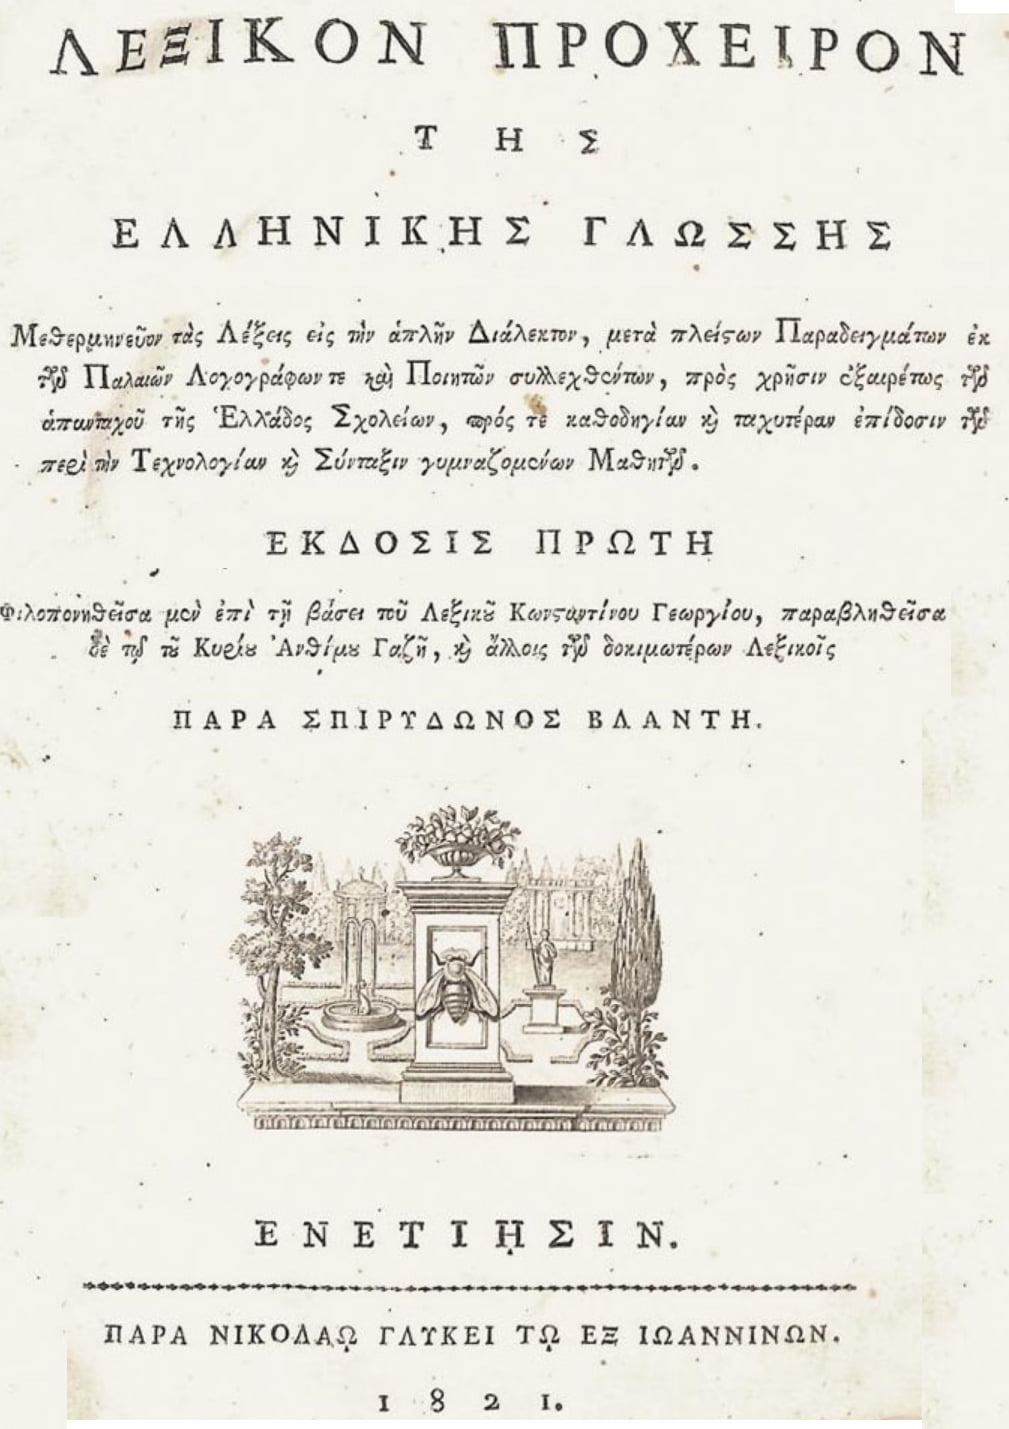 ΛΕΞΙΚΟΝ ΠΡΟΧΕΙΡΟΝ
ΤΗΣ
ΕΛΛΗΝΙΚΗΣ ΓΛΩΣΣΗΣ
Μεθερμηνεῦον τὰς Λέξεις εἰς τὴν ἁπλῆν Διάλεκτον, μετὰ πλείστων Παραδειγμάτων ἐκ
τῶν Παλαιῶν Λογογράφων τε καὶ Ποιητῶν συλλεχθέντων, πρὸς χρῆσιν ἐξαιρέτως τῶν
ἁπανταχοῦ τῆς Ἑλλάδος Σχολείων, πρός τε καθοδηγίαν καὶ ταχυτέραν ἐπίδοσιν τῶν
περὶ τὴν Τεχνολογίαν καὶ Σύνταξιν γυμναζομένων Μαθητῶν.
ΕΚΔΟΣΙΣ ΠΡΩΤΗ
Φιλοπονηθεῖσα μὲν ἐπὶ τῇ βάσει τοῦ Λεξικοῦ Κωνσταντίνου Γεωργίου, παραβληθεῖσα
δὲ τῷ τοῦ Κυρίου Ἀνθίμου Γαζῆ, καὶ ἄλλοις τῶν δοκιμωτέρων Λεξικοῖς
ΠΑΡΑ ΣΠΙΡΥΔΩΝΟΣ ΒΛΑΝΤΗ.
ΕΝΕΤΙῌΣΙΝ.
ΠΑΡΑ ΝΙΚΟΛΑῼ ΓΛΥΚΕΙ Τῼ ΕΞ ΙΩΑΝΝΙΝΩΝ.
1821.